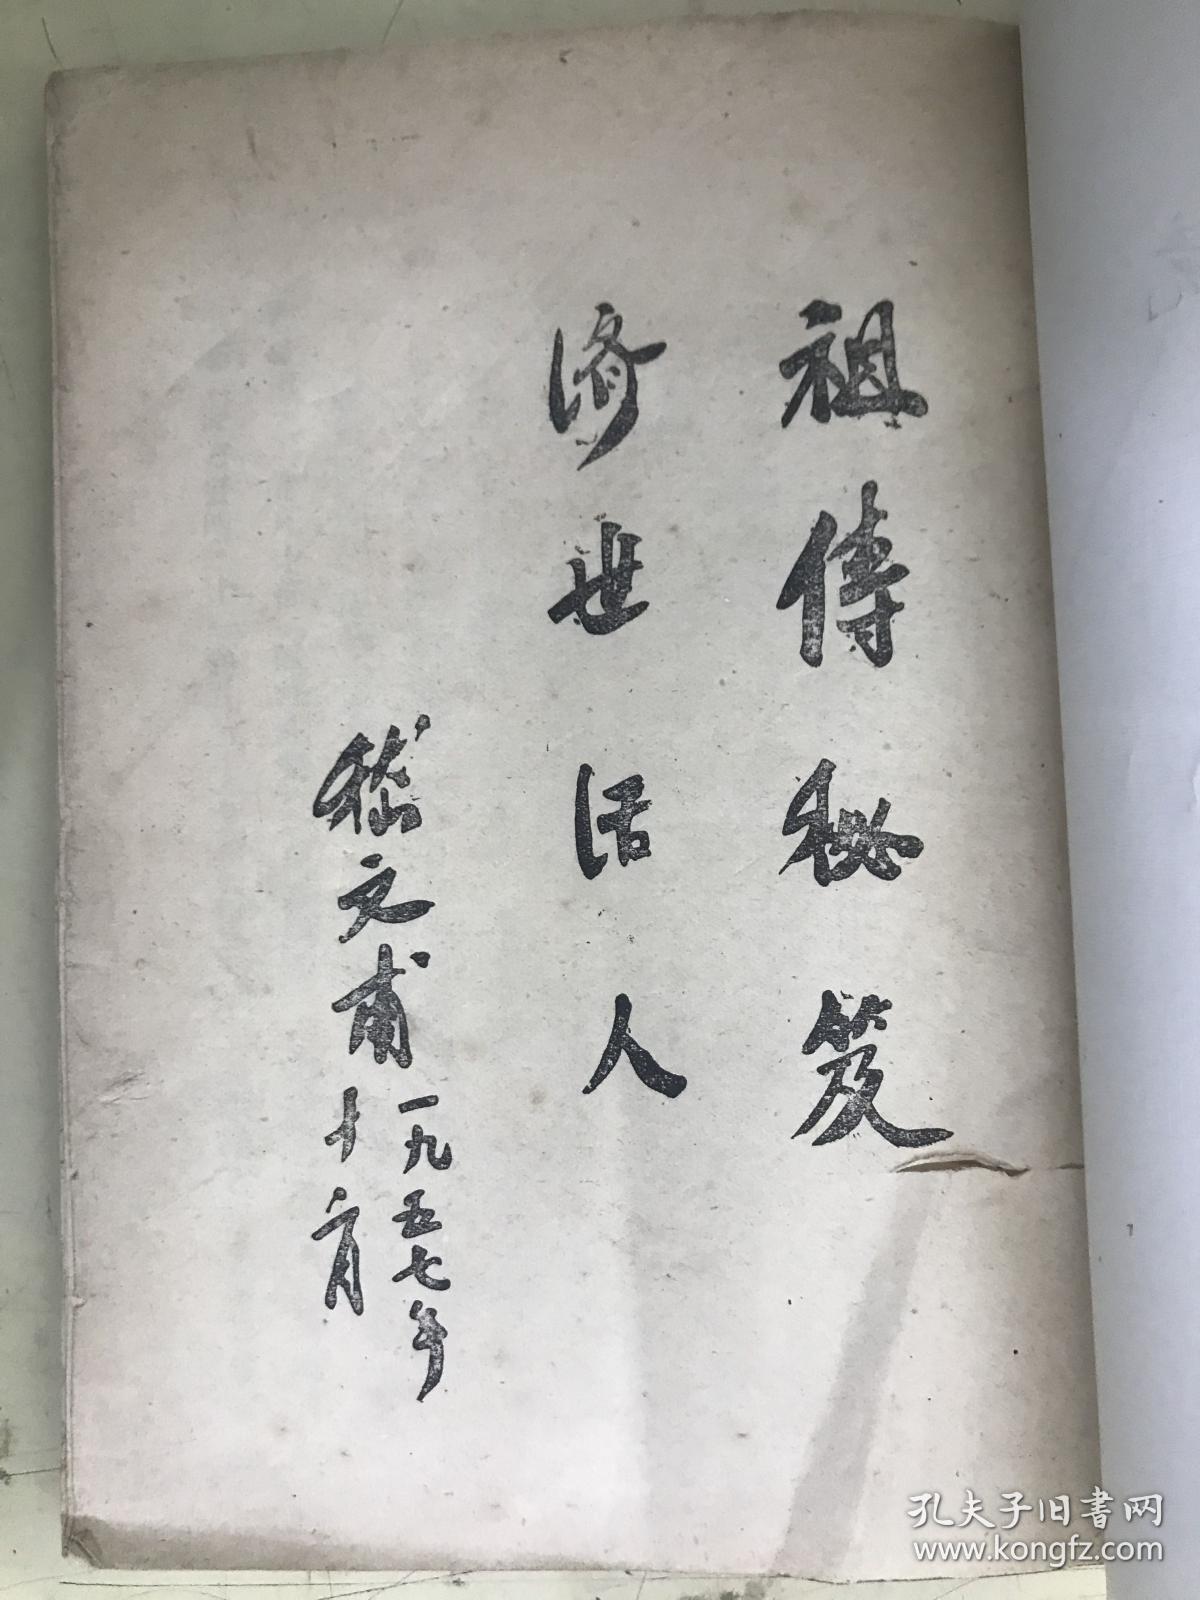 祖傳秘笈
济世活人
嵇文甫
一九五七年
十一月
孔夫子旧書网
www.kongfz.com